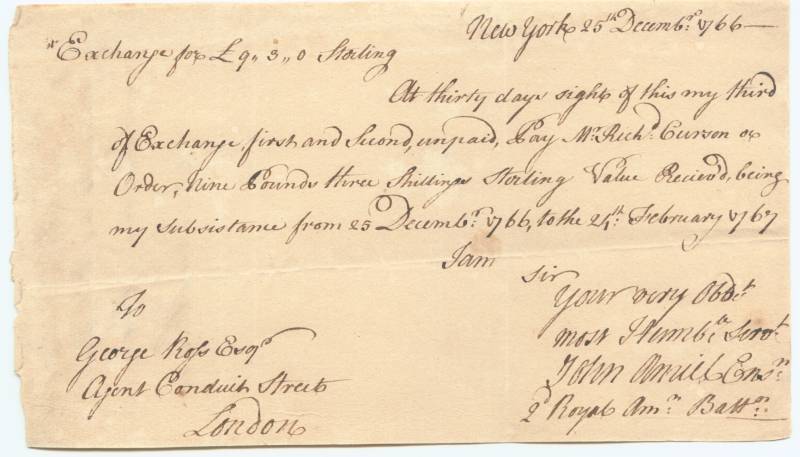 New York 25th Decembr. 1766—
Exchange for £9,, 3,, 0 Sterling
At thirty days sight of this my third
of Exchange, first and Second, unpaid, Pay Mr. Richd. Curson or
Order, Nine Pounds three Shillings Sterling Value Reciev'd, being
my Subsistance from 25 Decembr. 1766, to the 24th. February 1767
I am
Sir
Your very Obdt.
most Humble Servt.
John Ensn.
2d Royal Amn. Battn.
To
George Ross Esqr
Agent Conduit Street
London